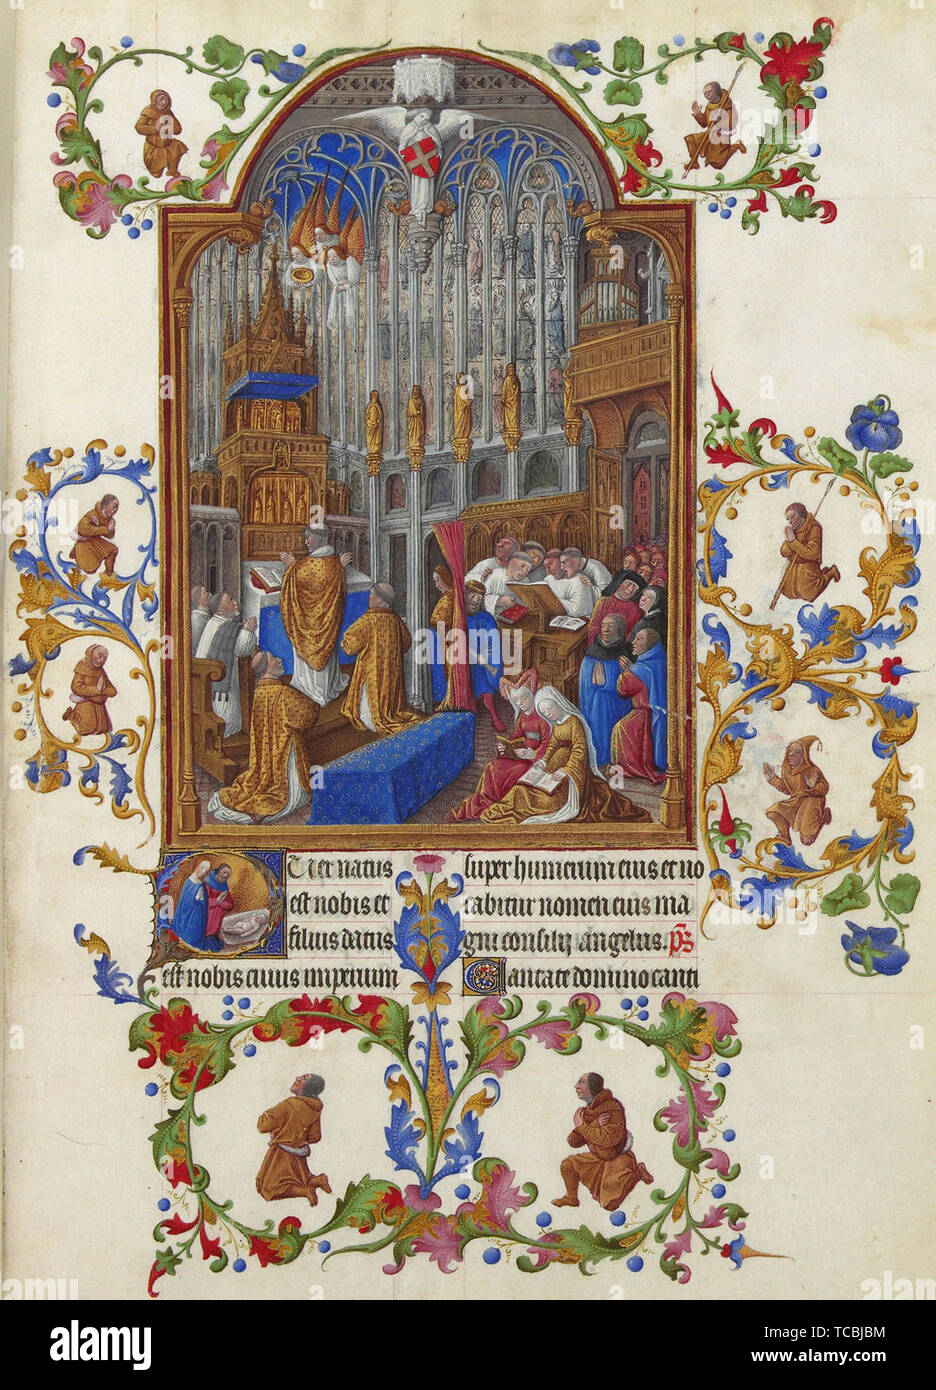 PUer natus
est nobis et
filius datus
est nobis cuius imperium
super humerum eius et vo
cabitur nomen eius ma
gni consilij Angelus. ps
Cantate domino canti
alamy
Image ID: TCBJBM
www.alamy.com